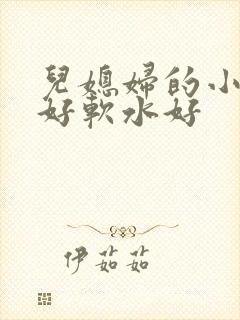 兒媳婦的小
好軟水好
伊茹茹